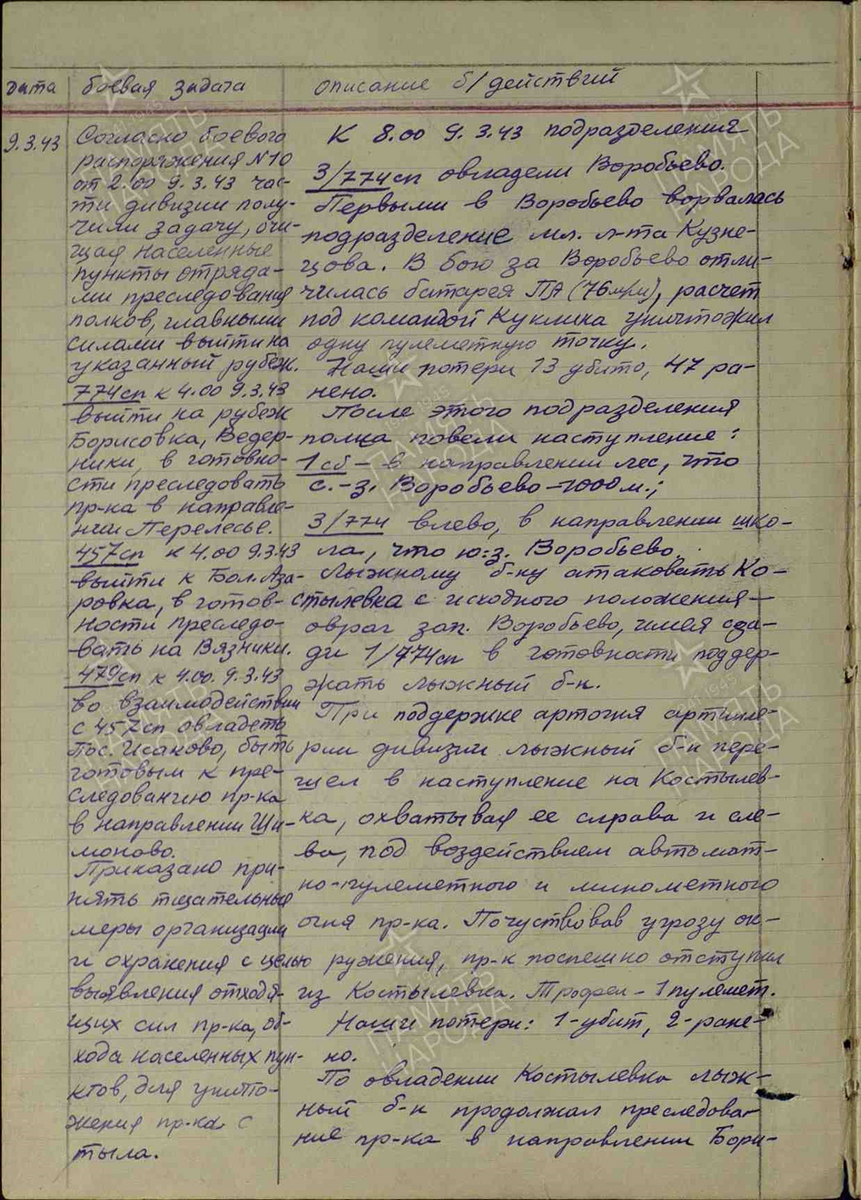 дата
боевая задача
описание б/действий
9.3.43
Согласно боевого
распоряжения №10
от 2.00 9.3.43 час-
ти дивизии полу-
чили задачу, очи-
щая населенные
пункты отряда-
ми преследования
полков, главными
силами выйти на
указанный рубеж.
774сп к 4.00 9.3.43
выйти на рубеж
Борисовка, Ведер-
ники, в готовно-
сти преследовать
пр-ка в направле-
нии Перелесье.
457сп к 4.00 9.3.43
выйти к Бол. Аза-
ровка, в готов-
ности преследо-
вать на Вязники.
479сп к 4.00 9.3.43
во взаимодействии
с 457сп овладеть
Пос. Исаково, быть
готовым к пре-
следованию пр-ка
в направлении Ши-
моново.
Приказано при-
нять тщательные
меры организации
и охранения с целью
выявления отходя-
щих сил пр-ка, об-
хода населенных пун-
ктов, для уничто-
жения пр-ка с
тыла.
К 8.00 9.3.43 подразделения
3/774сп овладели Воробьево.
Первыми в Воробьево ворвалась
подразделение мл. л-та Кузне-
цова. В бою за Воробьево отли-
чилась батарея ПА (76м/м), расчет
под командой Куклина уничтожил
одну пулеметную точку.
Наши потери 13 убито, 47 ра-
нено.
После этого подразделения
полка повели наступление:
1сб – в направлении лес, что
с.-з. Воробьево – 1000 м.;
3/774 влево, в направлении шко-
ла, что ю:з. Воробьево.
Лыжному б-ну атаковать Ко-
стылевка с исходного положения –
овраг зап. Воробьево, имея сза-
ди 1/774сп в готовности поддер-
жать лыжный б-н.
При поддержке артогня артилле-
рии дивизии лыжный б-н пере-
шел в наступление на Костылев-
ка, охватывая ее справа и сле-
ва, под воздействием автомат-
но-пулеметного и минометного
огня пр-ка. Почуствовав угрозу ок-
ружения, пр-к поспешно отступил
из Костылевка. Трофеи – 1 пулемет.
Наши потери: 1-убит, 2-ране-
но.
По овладении Костылевка лыж-
ный б-н продолжал преследова-
ние пр-ка в направлении Бори-
ПАМЯТЬ
НАРОДА